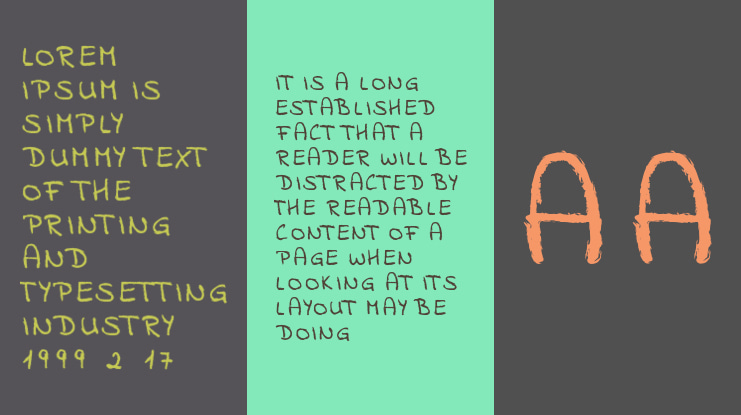 LOREM
IPSUM IS
SIMPLY
DUMMY TEXT
OF THE
PRINTING
AND
TYPESETTING
INDUSTRY
1999 2 17
IT IS A LONG
ESTABLISHED
FACT THAT A
READER WILL BE
DISTRACTED BY
THE READABLE
CONTENT OF A
PAGE WHEN
LOOKING AT ITS
LAYOUT MAY BE
DOING
A A